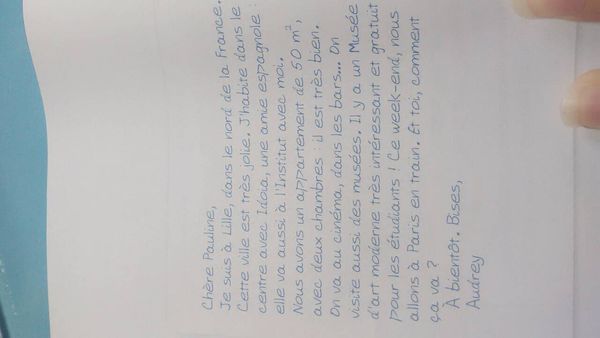 Chère Pauline,
Je suis à Lille, dans le nord de la France.
Cette ville est très jolie. J'habite dans le
centre avec Idoia, une amie espagnole :
elle va aussi à l'Institut avec moi.
Nous avons un appartement de 50 m²,
avec deux chambres : il est très bien.
On va au cinéma, dans les bars... On
visite aussi des musées. Il y a un Musée
d'art moderne très intéressant et gratuit
pour les étudiants ! Ce week-end, nous
allons à Paris en train. Et toi, comment
ça va ?
À bientôt. Bises,
Audrey